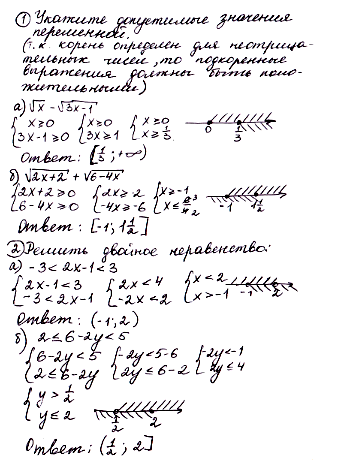 ① Укажите допустимые значения
переменной.
(т.к. корень определен для неотрица-
тельных чисел, то подкоренные
выражения должны быть поло-
жительными)
а) √x - √3x-1
{x≥0 {x≥0 {x≥0
{3x-1≥0 {3x≥1 {x≥1/3
0 1/3
Ответ: [1/3; +∞)
б) √2x+2 + √6-4x
{2x+2≥0 {2x≥-2 {x≥-1
{6-4x≥0 {-4x≥-6 {x≤
-1 1 1/2
Ответ: [-1; 1 1/2]
② Решить двойное неравенство:
а) -3<2x-1<3
{2x-1<3 {2x<4 {x<2
{-3<2x-1 {-2x<2 {x>-1
-1 2
Ответ: (-1; 2)
б) 2≤6-2y<5
{6-2y<5 {-2y<5-6 {-2y<-1
{2≤6-2y {2y≤6-2 {2y≤4
{y>1/2
{y≤2
1/2 2
Ответ: (1/2; 2]